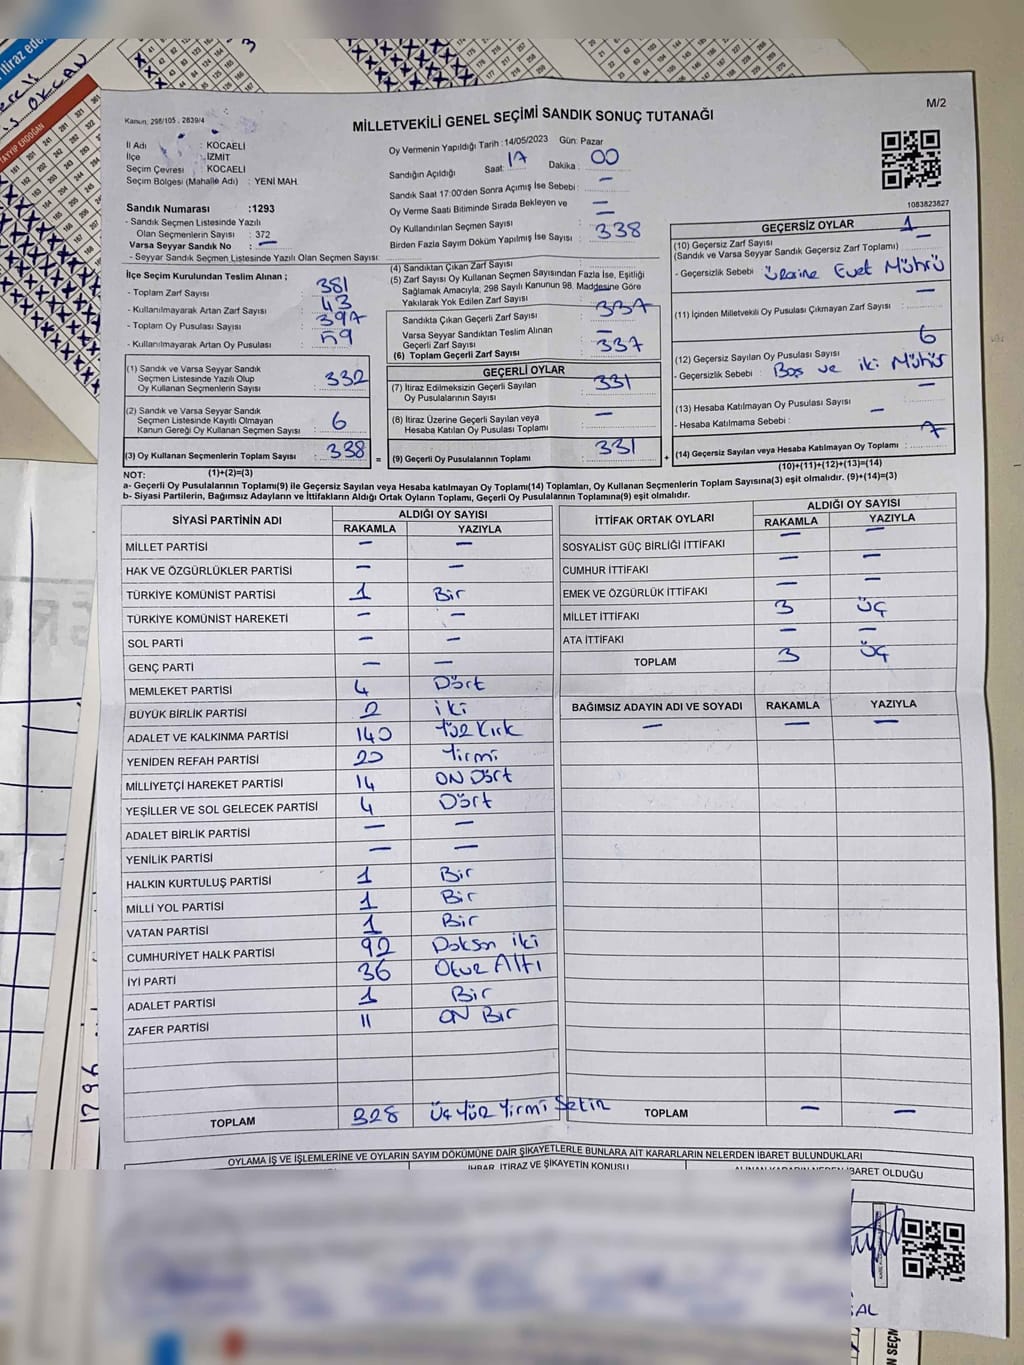 M/2
Kanun: 298/105 , 2839/4
MİLLETVEKİLİ GENEL SEÇİMİ SANDIK SONUÇ TUTANAĞI
İl Adı : KOCAELİ
İlçe : İZMİT
Seçim Çevresi : KOCAELİ
Seçim Bölgesi (Mahalle Adı) : YENİ MAH.
Sandık Numarası :1293
- Sandık Seçmen Listesinde Yazılı
Olan Seçmenlerin Sayısı : 372
Varsa Seyyar Sandık No : —
- Seyyar Sandık Seçmen Listesinde Yazılı Olan Seçmen Sayısı:
Oy Vermenin Yapıldığı Tarih : 14/05/2023 Gün: Pazar
Sandığın Açıldığı Saat: 17 Dakika : 00
Sandık Saat 17:00'den Sonra Açımış İse Sebebi : —
Oy Verme Saati Bitiminde Sırada Bekleyen ve
Oy Kullandırılan Seçmen Sayısı : —
Birden Fazla Sayım Döküm Yapılmış İse Sayısı : 338
1083823827
İlçe Seçim Kurulundan Teslim Alınan ;
- Toplam Zarf Sayısı : 381
- Kullanılmayarak Artan Zarf Sayısı : 43
- Toplam Oy Pusulası Sayısı : 397
- Kullanılmayarak Artan Oy Pusulası : 59
(1) Sandık ve Varsa Seyyar Sandık
Seçmen Listesinde Yazılı Olup
Oy Kullanan Seçmenlerin Sayısı : 332
(2) Sandık ve Varsa Seyyar Sandık
Seçmen Listesinde Kayıtlı Olmayan
Kanun Gereği Oy Kullanan Seçmen Sayısı : 6
(3) Oy Kullanan Seçmenlerin Toplam Sayısı : 338 =
(4) Sandıktan Çıkan Zarf Sayısı
(5) Zarf Sayısı Oy Kullanan Seçmen Sayısından Fazla İse, Eşitliği
Sağlamak Amacıyla, 298 Sayılı Kanunun 98. Maddesine Göre
Yakılarak Yok Edilen Zarf Sayısı :
Sandıkta Çıkan Geçerli Zarf Sayısı : 337
Varsa Seyyar Sandıktan Teslim Alınan
Geçerli Zarf Sayısı : —
(6) Toplam Geçerli Zarf Sayısı : 337
GEÇERLİ OYLAR
(7) İtiraz Edilmeksizin Geçerli Sayılan
Oy Pusulalarının Sayısı : 331
(8) İtiraz Üzerine Geçerli Sayılan veya
Hesaba Katılan Oy Pusulası Toplamı : —
(9) Geçerli Oy Pusulalarının Toplamı : 331 +
GEÇERSİZ OYLAR
(10) Geçersiz Zarf Sayısı 1
(Sandık ve Varsa Seyyar Sandık Geçersiz Zarf Toplamı) —
- Geçersizlik Sebebi : Üzerine Evet Mührü
(11) İçinden Milletvekili Oy Pusulası Çıkmayan Zarf Sayısı : —
(12) Geçersiz Sayılan Oy Pusulası Sayısı : 6
- Geçersizlik Sebebi : Boş ve iki Mühür
(13) Hesaba Katılmayan Oy Pusulası Sayısı : —
- Hesaba Katılmama Sebebi : —
(14) Geçersiz Sayılan veya Hesaba Katılmayan Oy Toplamı : 7
NOT: (1)+(2)=(3) (10)+(11)+(12)+(13)=(14)
a- Geçerli Oy Pusulalarının Toplamı(9) ile Geçersiz Sayılan veya Hesaba katılmayan Oy Toplamı(14) Toplamları, Oy Kullanan Seçmenlerin Toplam Sayısına(3) eşit olmalıdır. (9)+(14)=(3)
b- Siyasi Partilerin, Bağımsız Adayların ve İttifakların Aldığı Ortak Oyların Toplamı, Geçerli Oy Pusulalarının Toplamına(9) eşit olmalıdır.
SİYASİ PARTİNİN ADI ALDIĞI OY SAYISI
RAKAMLA YAZIYLA
MİLLET PARTİSİ — —
HAK VE ÖZGÜRLÜKLER PARTİSİ — —
TÜRKİYE KOMÜNİST PARTİSİ 1 Bir
TÜRKİYE KOMÜNİST HAREKETİ — —
SOL PARTİ — —
GENÇ PARTİ — —
MEMLEKET PARTİSİ 4 Dört
BÜYÜK BİRLİK PARTİSİ 2 iki
ADALET VE KALKINMA PARTİSİ 140 Yüz Kırk
YENİDEN REFAH PARTİSİ 20 Yirmi
MİLLİYETÇİ HAREKET PARTİSİ 14 ON Dört
YEŞİLLER VE SOL GELECEK PARTİSİ 4 Dört
ADALET BİRLİK PARTİSİ — —
YENİLİK PARTİSİ — —
HALKIN KURTULUŞ PARTİSİ 1 Bir
MİLLİ YOL PARTİSİ 1 Bir
VATAN PARTİSİ 1 Bir
CUMHURİYET HALK PARTİSİ 92 Doksan iki
İYİ PARTİ 36 Otuz Altı
ADALET PARTİSİ 1 Bir
ZAFER PARTİSİ 11 ON Bir
TOPLAM 328 Üç Yüz Yirmi Sekiz
İTTİFAK ORTAK OYLARI ALDIĞI OY SAYISI
RAKAMLA YAZIYLA
SOSYALİST GÜÇ BİRLİĞİ İTTİFAKI — —
CUMHUR İTTİFAKI — —
EMEK VE ÖZGÜRLÜK İTTİFAKI — —
MİLLET İTTİFAKI 3 Üç
ATA İTTİFAKI — —
TOPLAM 3 Üç
BAĞIMSIZ ADAYIN ADI VE SOYADI RAKAMLA YAZIYLA
— — —
TOPLAM — —
OYLAMA İŞ VE İŞLEMLERİNE VE OYLARIN SAYIM DÖKÜMÜNE DAİR ŞİKAYETLERLE BUNLARA AİT KARARLARIN NELERDEN İBARET BULUNDUKLARI
İHBAR, İTİRAZ VE ŞİKAYETİN KONUSU
İBARET OLDUĞU
1296